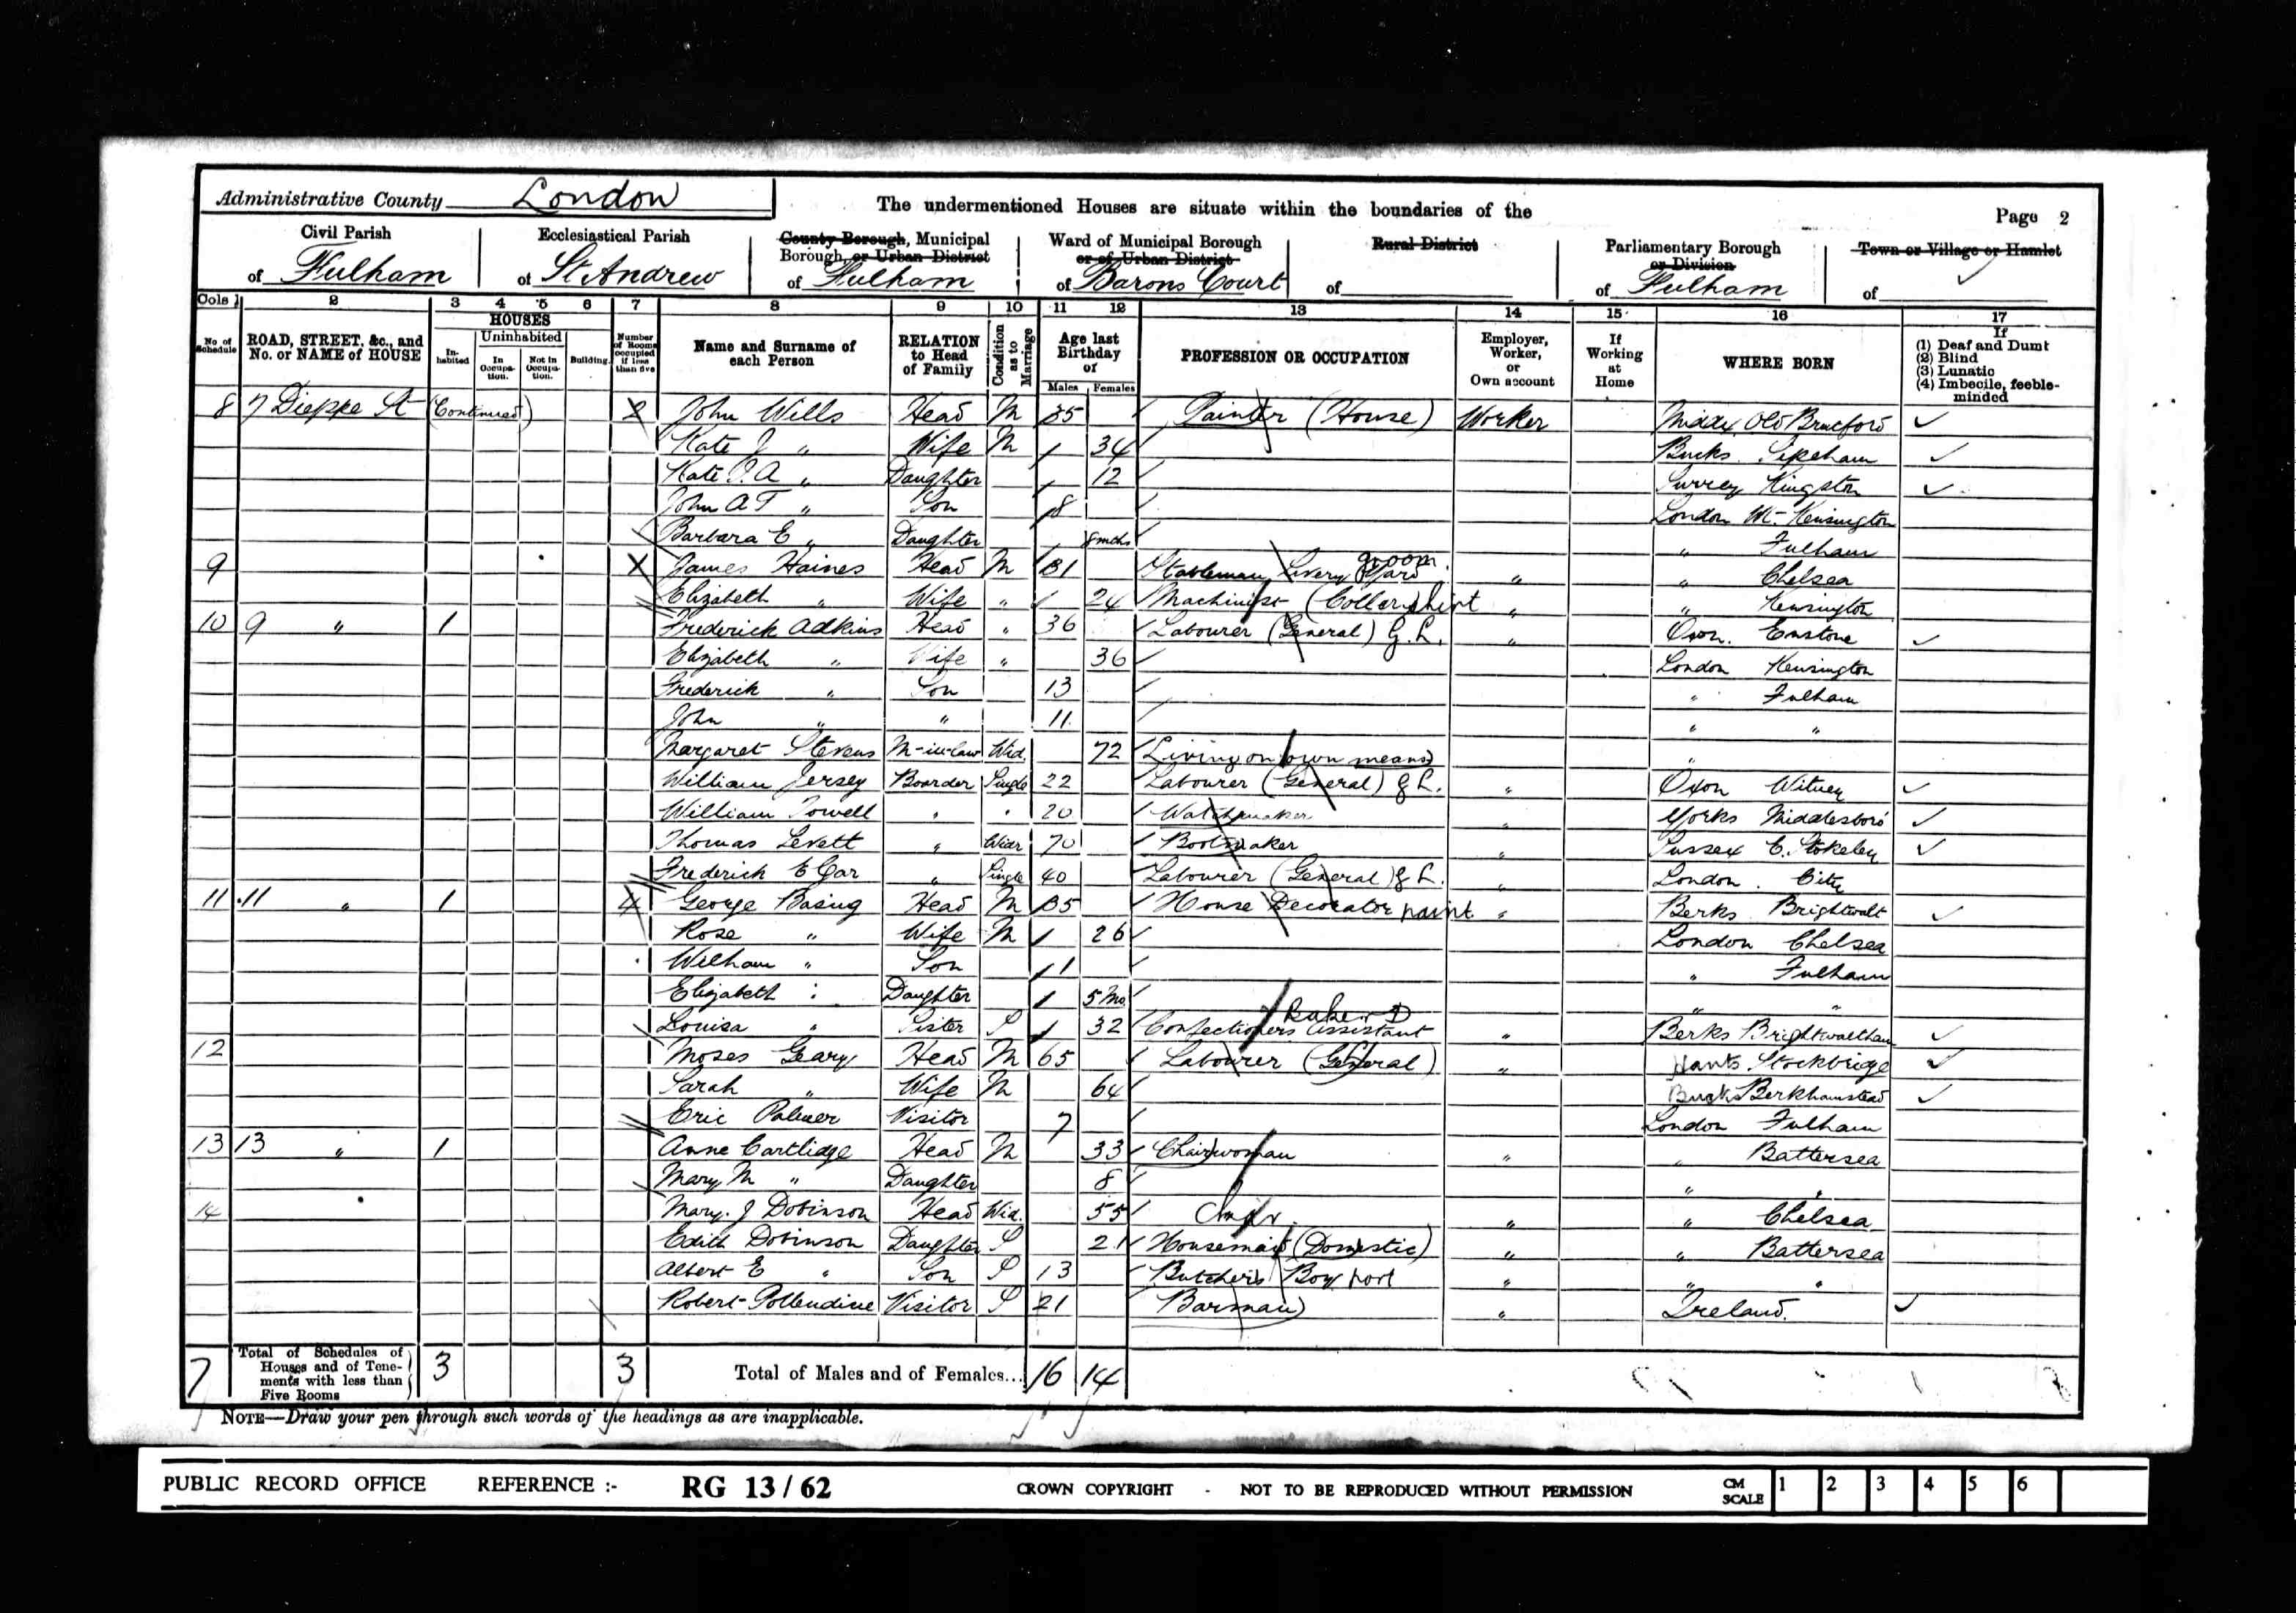 Administrative County London
The undermentioned Houses are situate within the boundaries of the
Page 2
Civil Parish of Fulham
Ecclesiastical Parish of St Andrew
County Borough, Municipal Borough, or Urban District of Fulham
Ward of Municipal Borough or of Urban District of Barons Court
Rural District of
Parliamentary Borough or Division of Fulham
Town or Village or Hamlet of
Cols 1 2 3 4 5 6 7 8 9 10 11 12 13 14 15 16 17
No. of Schedule
ROAD, STREET, &c., and No. or NAME of HOUSE
HOUSES
In-habited
Uninhabited
In Occupa-tion.
Not in Occupa-tion.
Building.
Number of Rooms occupied if less than five
Name and Surname of each Person
RELATION to Head of Family
Condition as to Marriage
Age last Birthday of
Males Females
PROFESSION OR OCCUPATION
Employer, Worker, or Own account
If Working at Home
WHERE BORN
If
(1) Deaf and Dumb
(2) Blind
(3) Lunatic
(4) Imbecile, feeble-minded
8 7 Dieppe St (Continued) John Wills Head M 35 Painter (House) Worker Middx Old
Kate J " Wife M 34 Bucks
Kate " Daughter 12 Surrey Kingston
John A T " Son 8 London W. Kensington
Barbara E " Daughter 8 mths " Fulham
9 James Haines Head M 31 Stableman Livery Yard groom. " " Chelsea
Elizabeth " Wife " 24 Machinist (Collar) shirt " " Kensington
10 9 " 1 Frederick Adkins Head " 36 Labourer (General) G.L. " Oxon. Enstone
Elizabeth " Wife " 36 London Kensington
Frederick " Son 13 " Fulham
John " " 11 " "
Margaret Stevens M-in-law Wid. 72 Living on own means "
William Jersey Boarder Single 22 Labourer (General) G L. " Oxon Witney
William Powell " " 20 Watchmaker " Yorks Middlesboro
Thomas Levett " Widr 70 Bootmaker " Sussex
Frederick " Single 40 Labourer (General) G L. " London City
11 11 " 1 4 George Basing Head M 35 House Decorator paint " Berks Brightwalt
Rose " Wife M 26 London Chelsea
William " Son 1 " Fulham
Elizabeth : Daughter 5 Mo " "
Louisa " Sister S 32 Confectioners Assistant Baker D " Berks Brightwaltham
12 Moses Geary Head M 65 Labourer (General) " Hants Stockbridge
Sarah " Wife M 64 Bucks Berkhamstead
Eric Palmer Visitor 7 London Fulham
13 13 " 1 Anne Cartlidge Head M 33 Chairwoman " " Battersea
Mary M " Daughter 8 " "
14 Mary. J Dobinson Head Wid. 55 Char " " Chelsea
Edith Dobinson Daughter S 21 Housemaid (Domestic) " " Battersea
Albert E " Son S 13 Butchers Boy port " " "
Robert Pollendine Visitor S 21 Barman " Ireland.
7 Total of Schedules of Houses and of Tene-ments with less than Five Rooms 3 3 Total of Males and of Females... 16 14
NOTE—Draw your pen through such words of the headings as are inapplicable.
PUBLIC RECORD OFFICE REFERENCE :- RG 13 / 62 CROWN COPYRIGHT - NOT TO BE REPRODUCED WITHOUT PERMISSION CM SCALE 1 2 3 4 5 6